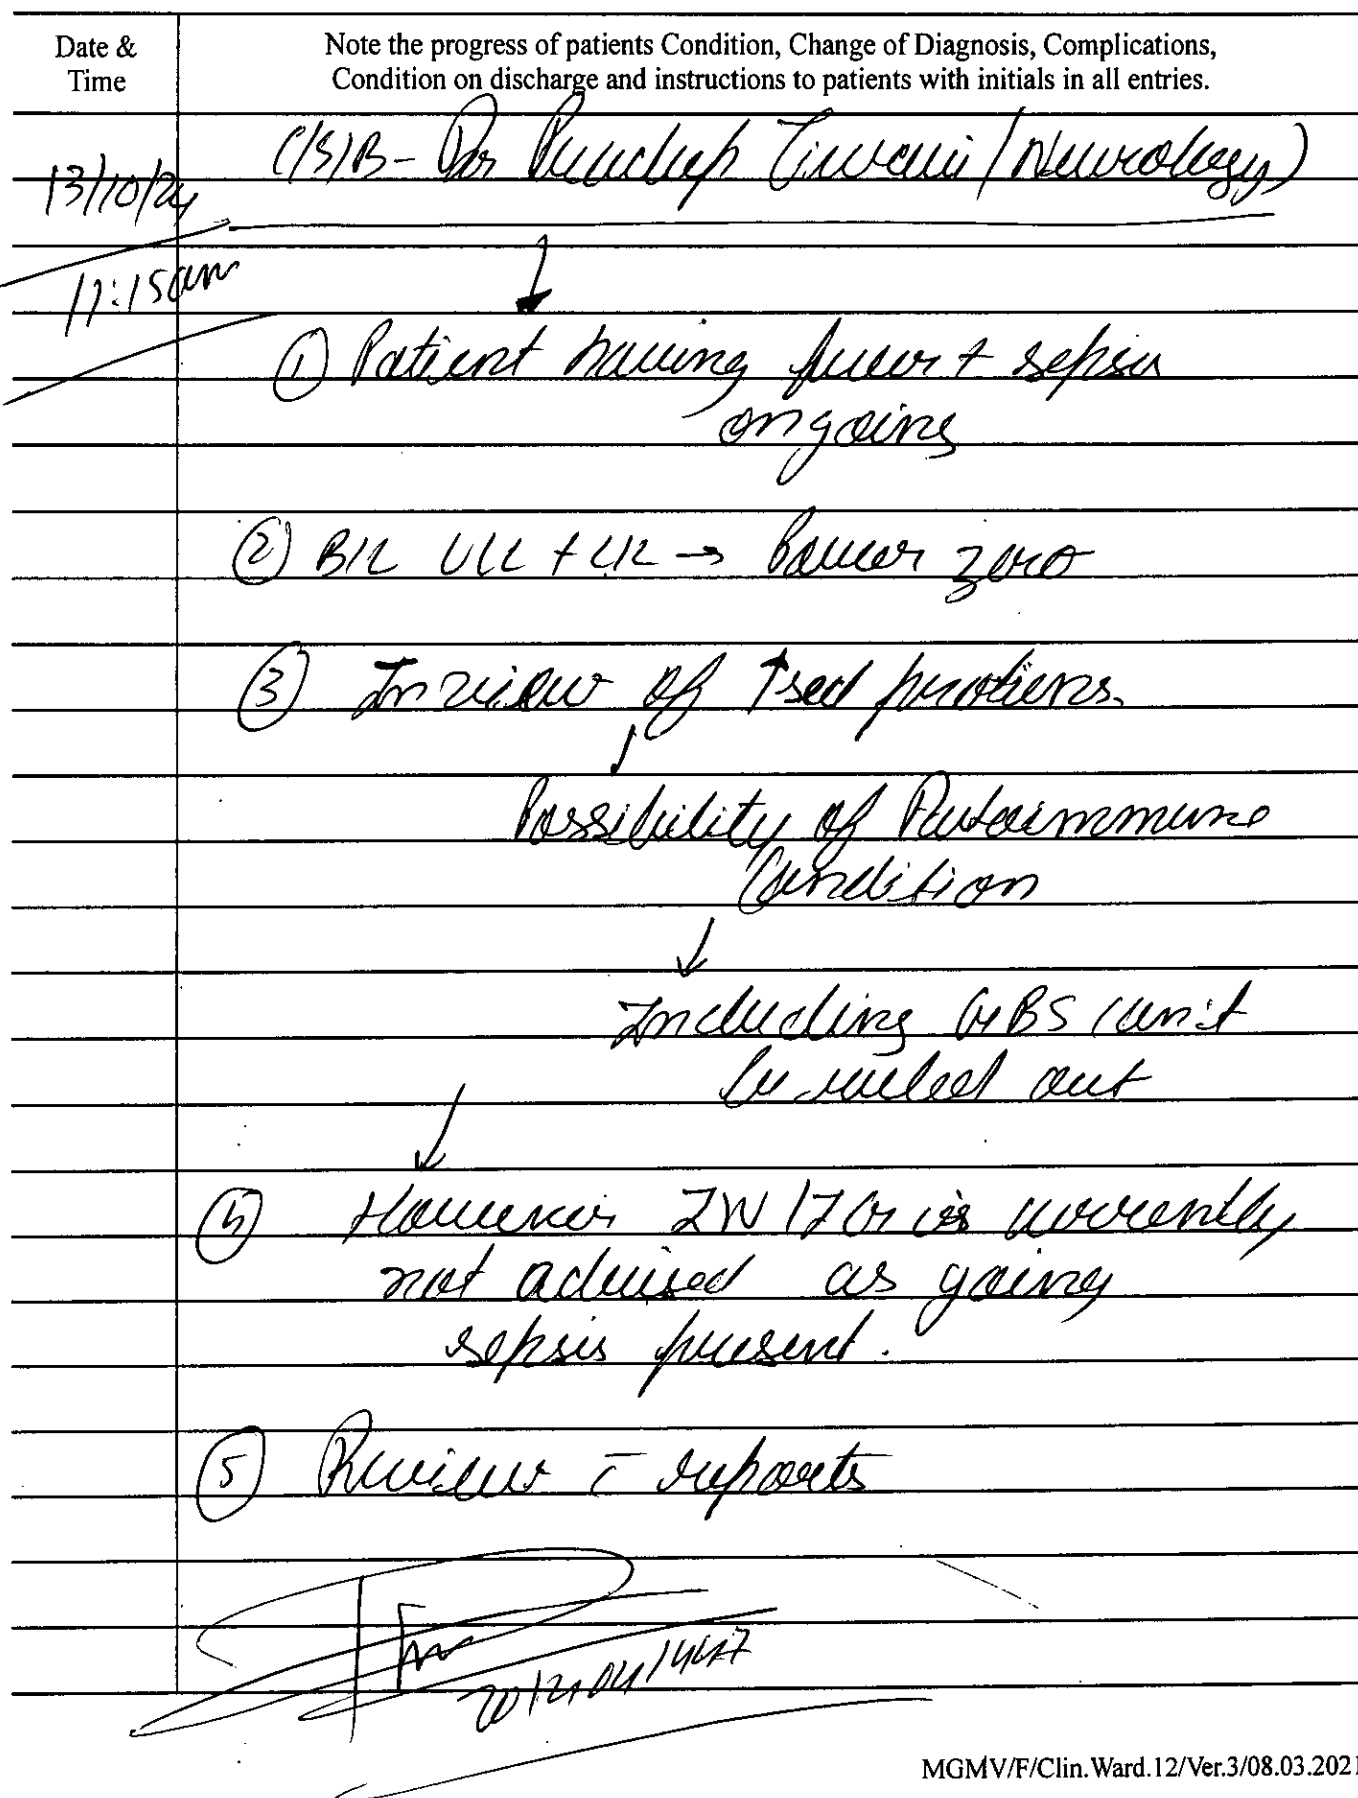 Date &
Time
Note the progress of patients Condition, Change of Diagnosis, Complications,
Condition on discharge and instructions to patients with initials in all entries.
13/10/24
11:15am
C/S/B - Dr Tiwari / (Neurology)
↓
① Patient having fever + sepsis
ongoing
② B/L U/L + L/L → Power zero
③ In view of ↑sed protiens.
↓
Possibility of Autoimmune
Condition
↓
Including GBS can't
be ruled out
↓
④ However IV IG is currently
not advised as going
sepsis present.
⑤ Review c̄ reports
MGMV/F/Clin.Ward.12/Ver.3/08.03.2021